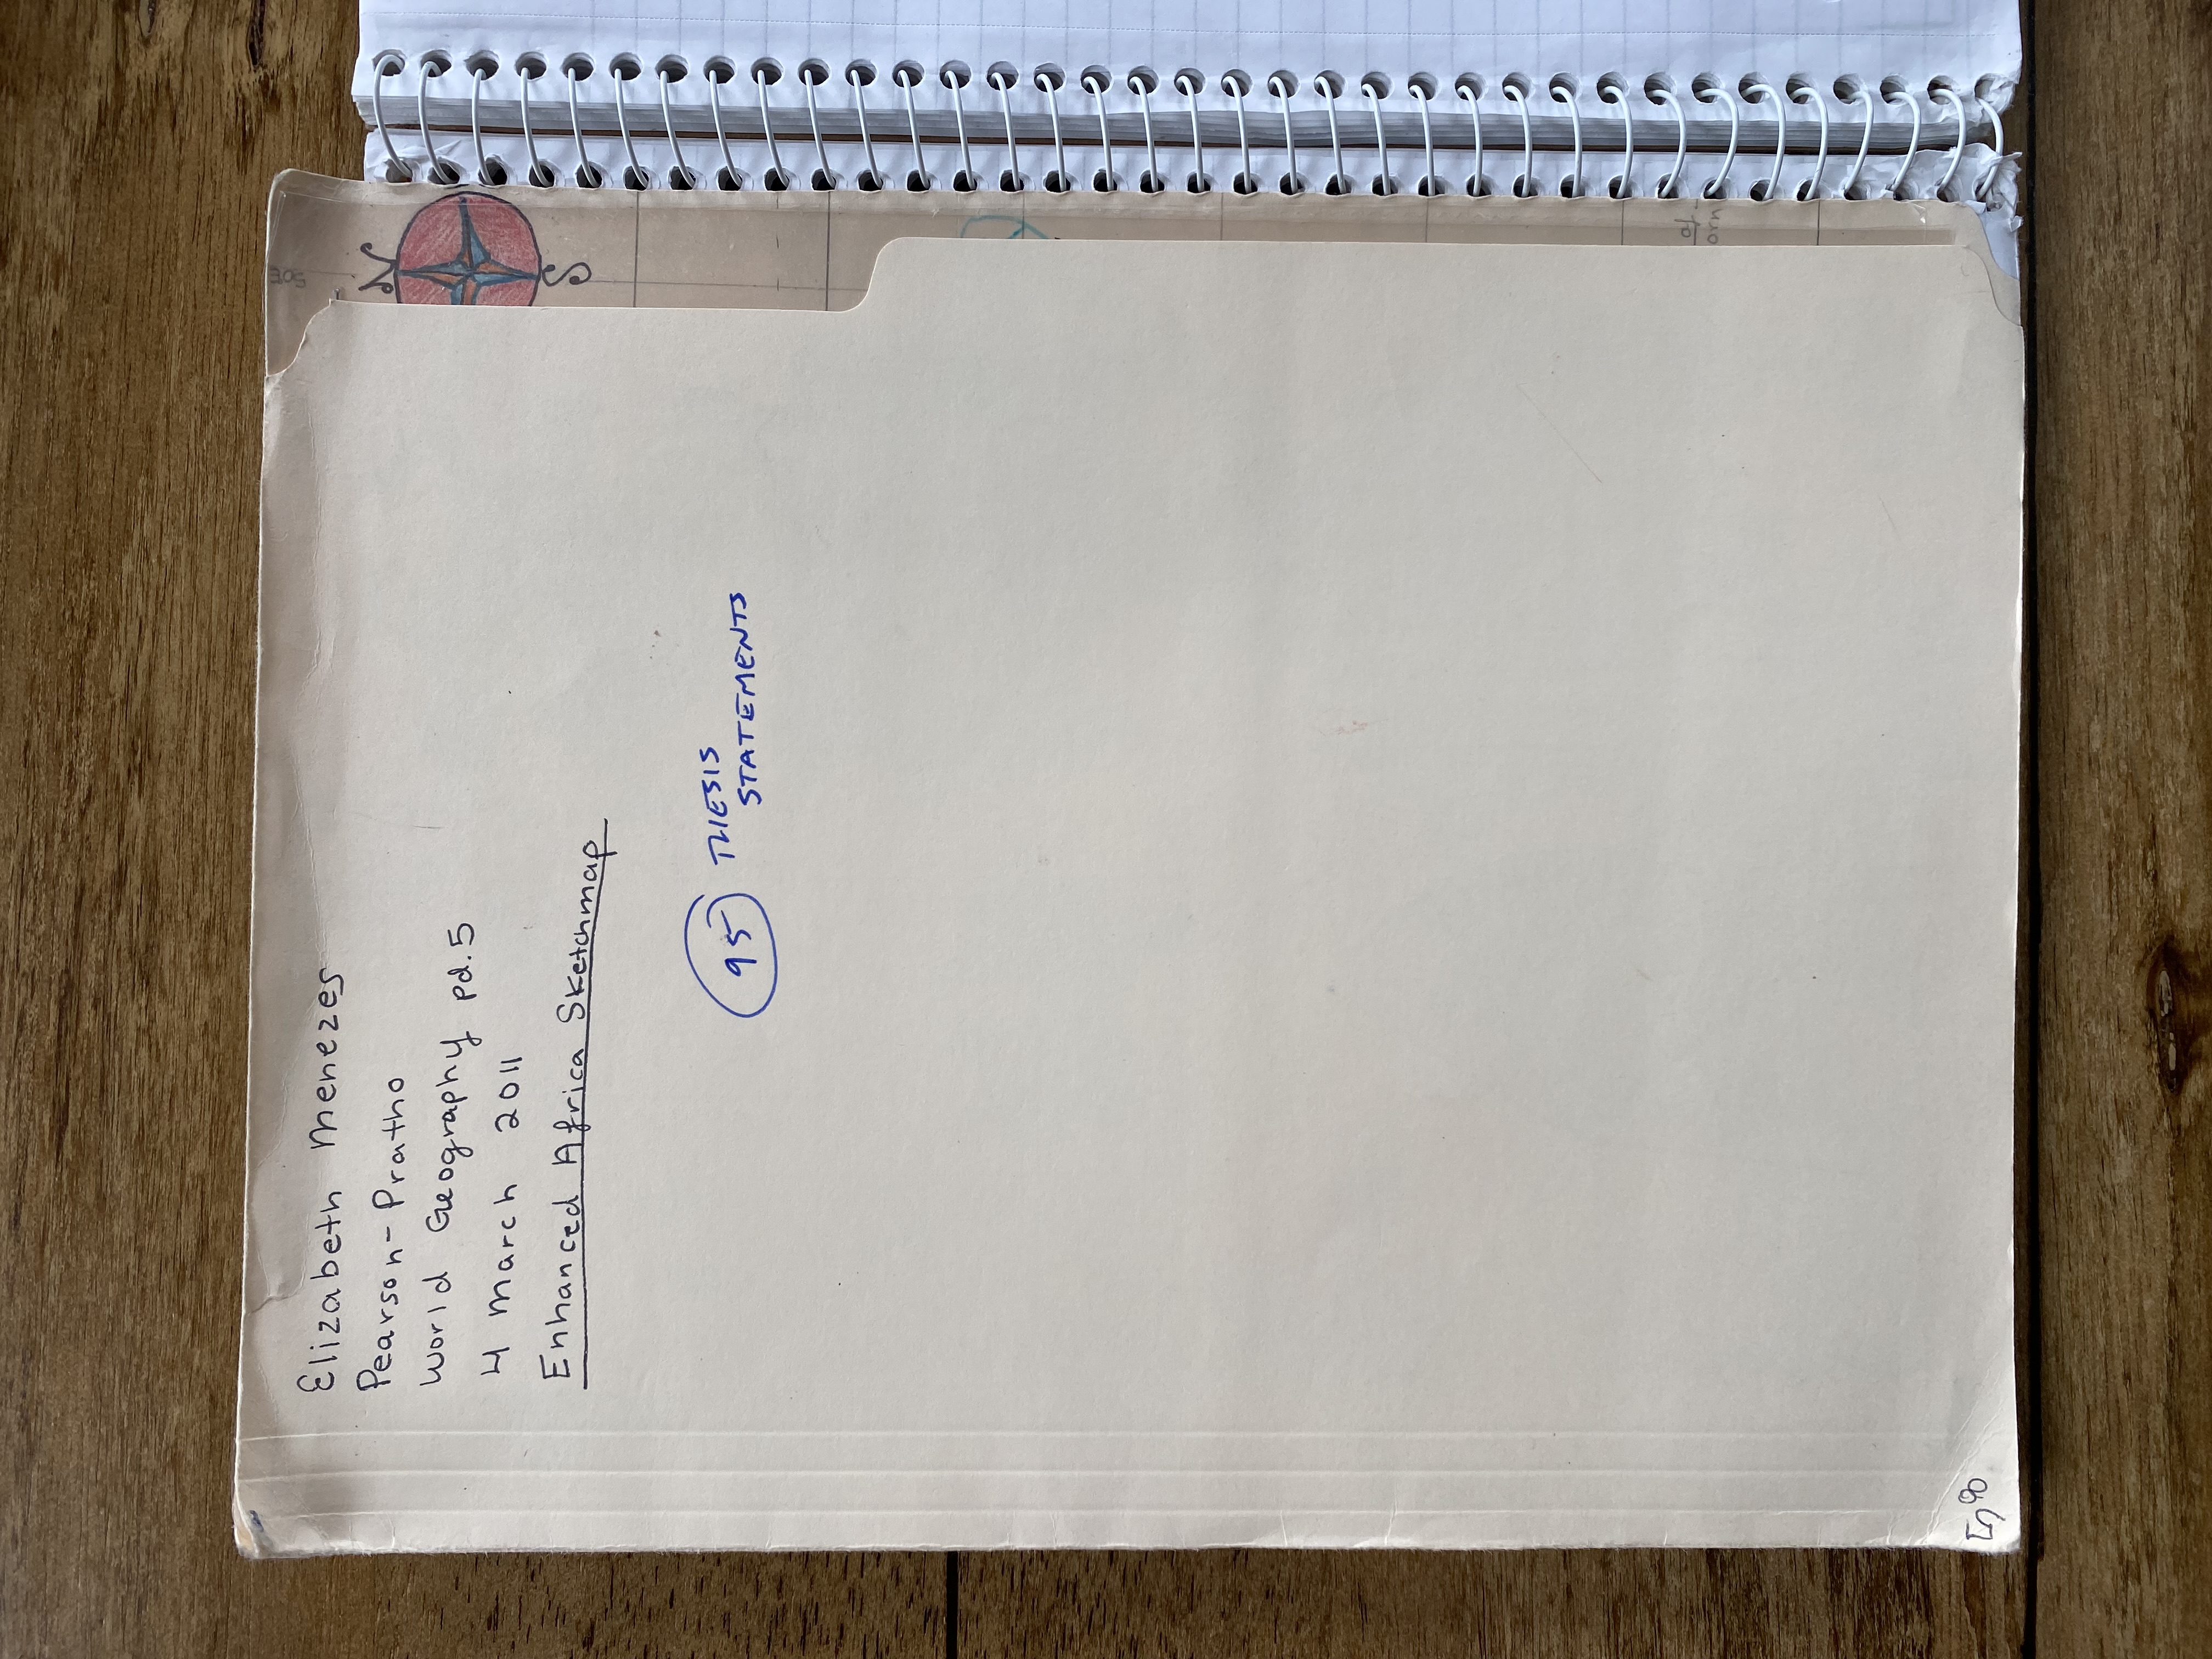 Elizabeth Menezes
Pearson-Pratho
World Geography pd.5
4 March 2011
Enhanced Africa Sketchmap
95 THESIS
STATEMENTS
50E
N
S